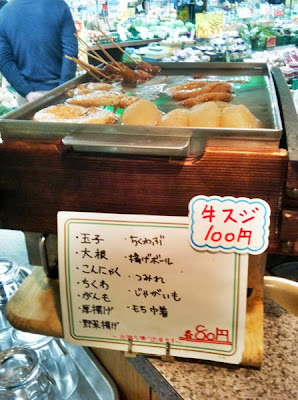 牛スジ
100円
・玉子
・大根
・こんにゃく
・ちくわ
・がんも
・厚揚げ
・野菜揚げ
・ちくわぶ
・揚げボール
・つみれ
・じゃがいも
・もち巾着
各80円